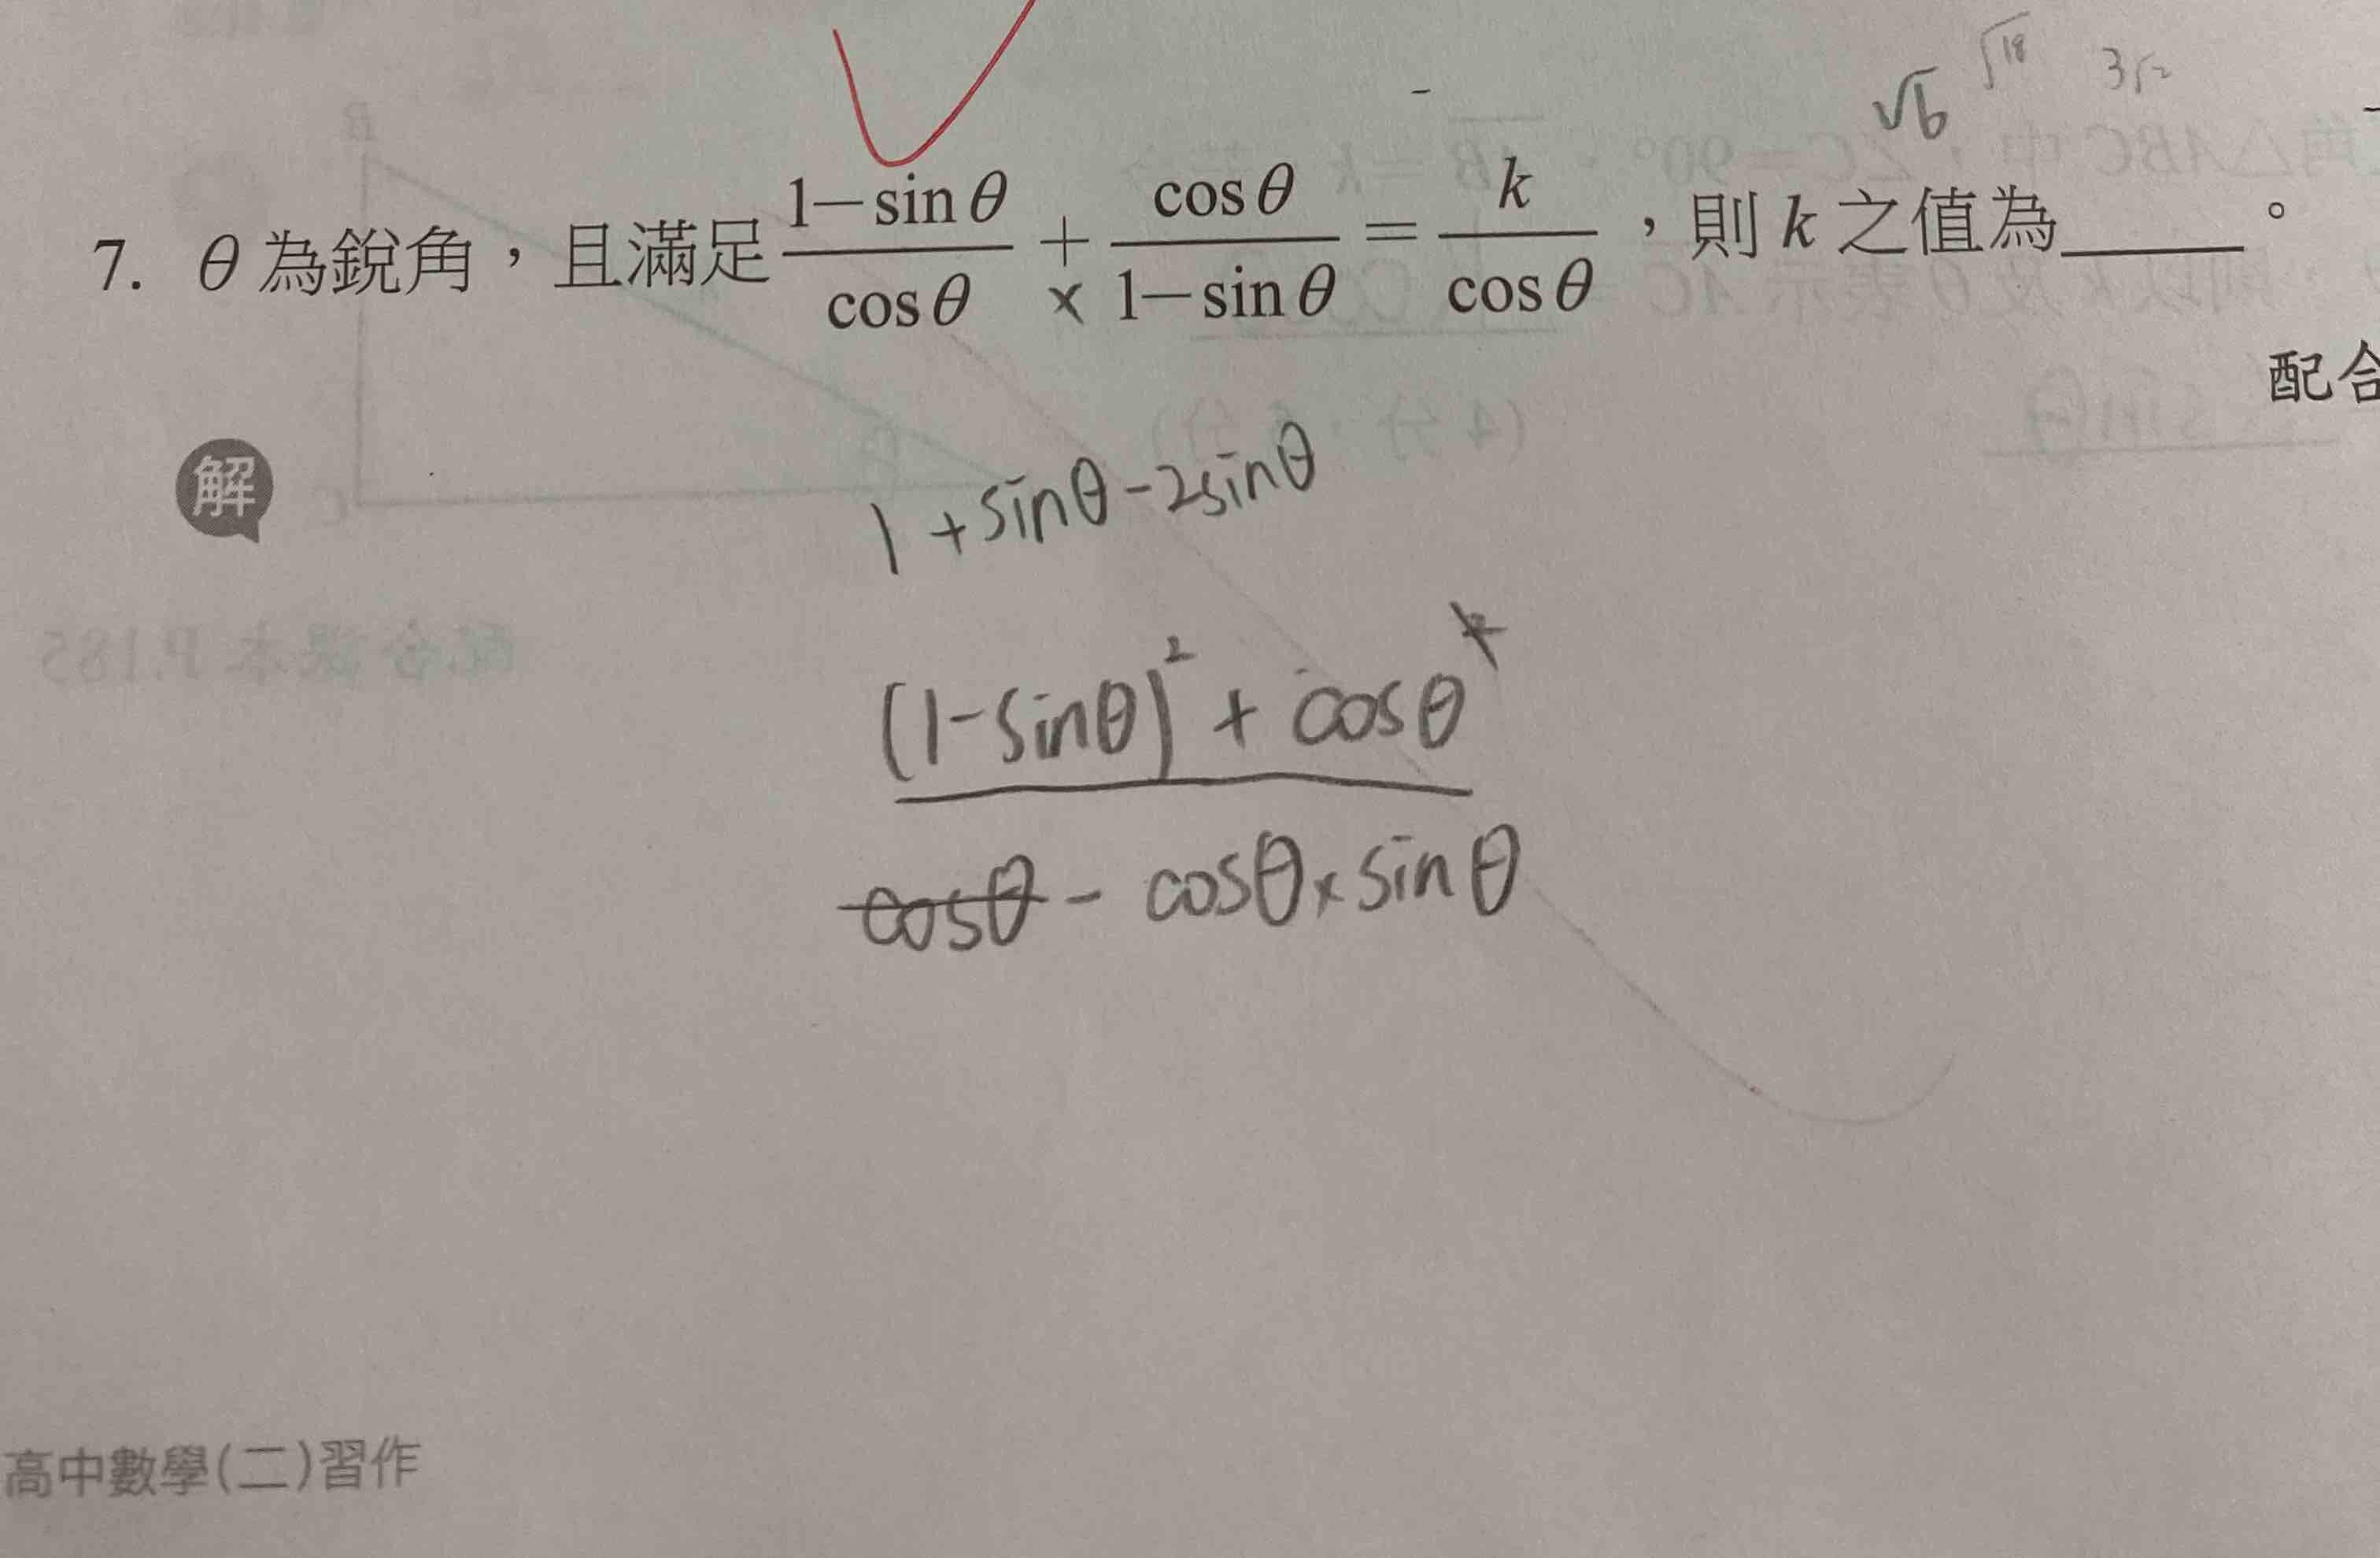 √6 √18 3√2
7. θ為銳角，且滿足 (1－sinθ)/cosθ + cosθ/(1－sinθ) = k/cosθ，則 k 之值為＿＿＿。
×
配合
解
1 + sinθ - 2sinθ
(1-sinθ)² + cosθ
cosθ - cosθ×sinθ
配合課本 P.185
高中數學(二)習作